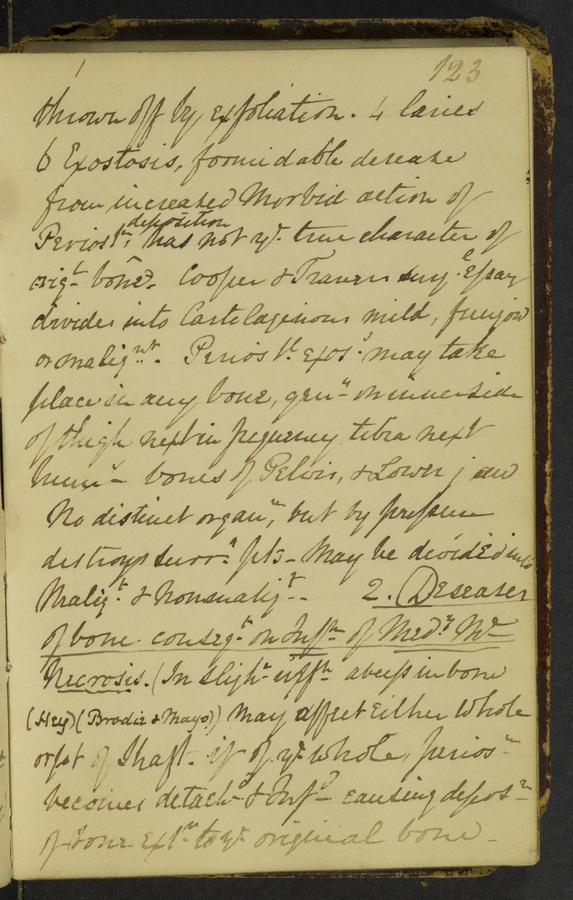 123
thrown off by exfoliation. 4 Caries
6 Exostosis, formidable desease
from increased Morbid action of
deposition
Periostm. has not ye. true character of
origl. bone. Cooper & Travers surg. Essay
divides into Cartelaginous mild, fungous
or malignt. Periostl. Exoss. may take
place in any bone, genll. on inner side
of thigh next in frequency tibia next
bones of Pelvis, & Lower jaw
No distinct organn, but by pressure
destroys surrg. pts - May be divided into
Maligt. & Nonmaligt. - 2. Deseases
of bone conseqt. on Inffn. of Medy. Me
Necrosis. (In slight inffn. abcess in bone
(Hey) (Brodie & Mayo)) May affect Either Whole
or pt of Shaft. if of ye. whole, perios
becomes detachd. & Infd. causing deposn.
of bone Extl. to ye. original bone -